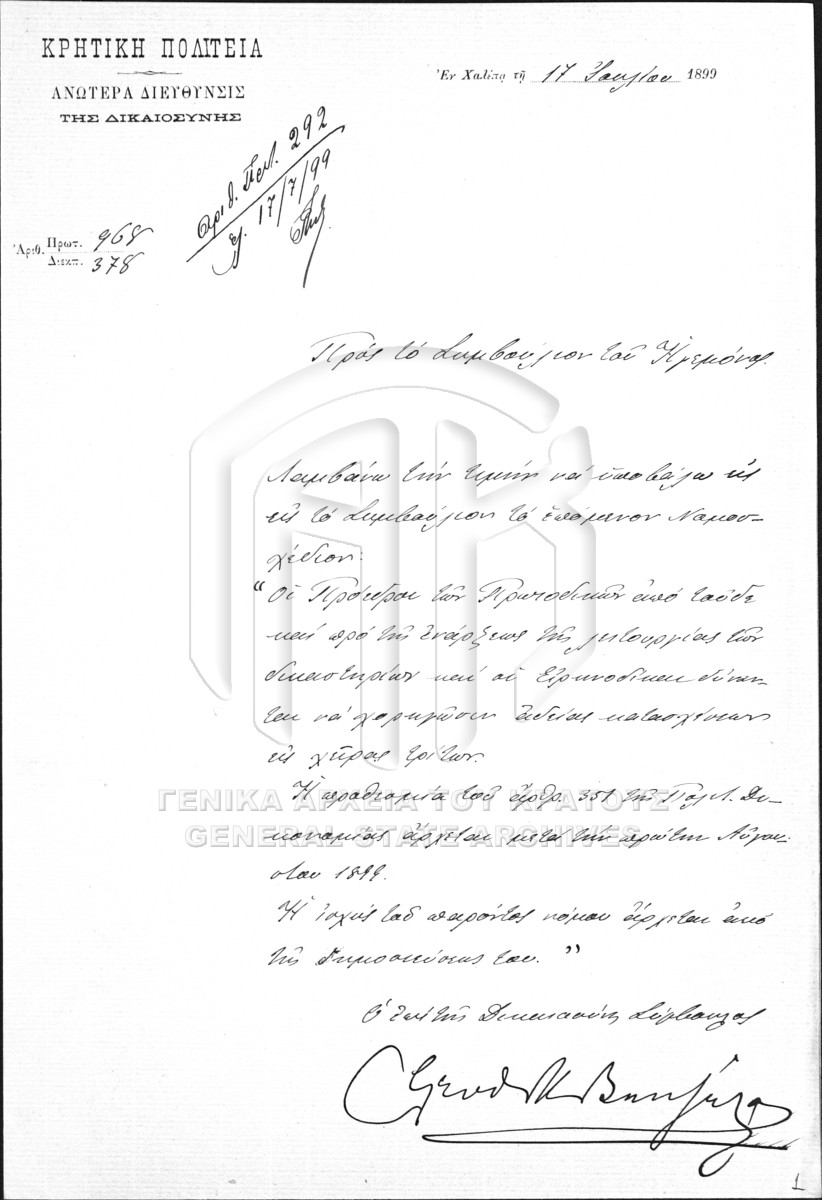 ΚΡΗΤΙΚΗ ΠΟΛΙΤΕΙΑ
ΑΝΩΤΕΡΑ ΔΙΕΥΘΥΝΣΙΣ
ΤΗΣ ΔΙΚΑΙΟΣΥΝΗΣ
Ἐν Χαλέπᾳ τῇ 17 Ἰουλίου 1899
Ἀριθ. Πρωτ. 968
Διεκπ. 378
Ἀριθ. Πρωτ. 292
17/7/99
Πρός τό Συμβούλιον τοῦ Ἡγεμόνος.
Λαμβάνω τήν τιμήν νά ὑποβάλω εἰς
εἰς τό Συμβούλιον τό ἑπόμενον Νομοσ-
χέδιον:
“Οἱ Πρόεδροι τῶν Πρωτοδικῶν ἀπό τοῦδε
καί πρό τῆς ἐνάρξεως τῆς λειτουργίας τῶν
δικαστηρίων καί οἱ Εἰρηνοδίκαι δύναν-
ται νά χορηγῶσιν ἀδείας κατασχέσεως
εἰς χεῖρας τρίτων.
Ἡ προθεσμία τοῦ ἄρθρ. 351 τῆς Πολιτ. Δι-
κονομίας ἄρχεται μετά τήν πρώτην Αὐγού-
στου 1899.
Ἡ ἰσχύς τοῦ παρόντος νόμου ἄρχεται ἀπό
τῆς δημοσιεύσεώς του.”
Ὁ ἐπί τῆς Δικαιοσύνης Σύμβουλος
Ἐλευθ Κ Βενιζέλος
ΓΕΝΙΚΑ ΑΡΧΕΙΑ ΤΟΥ ΚΡΑΤΟΥΣ
GENERAL STATE ARCHIVES
1